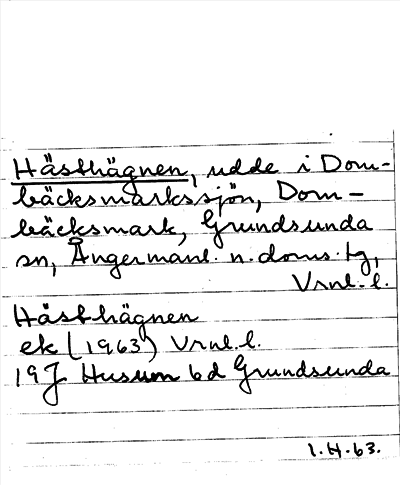 Hästhägnen, udde i Dom-
bäcksmarkssjön, Dom-
bäcksmark, Grundsunda
sn, Ångermanl. n. doms. tg,
Vrnl. l.
Hästhägnen
ek (1963) Vrnl. l.
19J Husum bd Grundsunda
1.H.63.